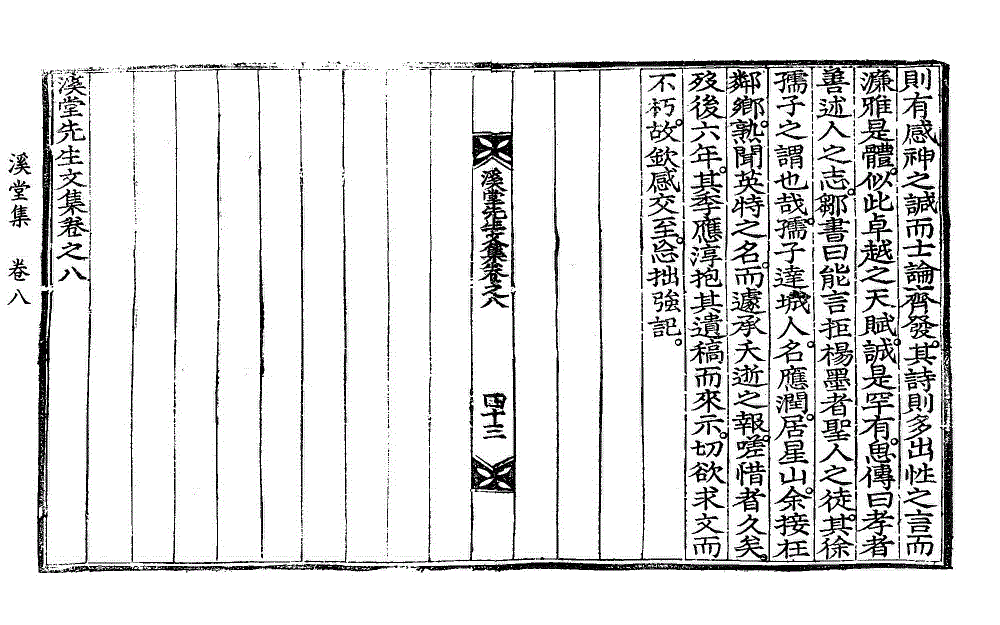 則有感神之誠而士論齊發。其詩則多出性之言而
濂雅是體。似此卓越之天賦。誠是罕有。思傳曰孝者
善述人之志。鄒書曰能言拒楊墨者聖人之徒。其徐
孺子之謂也哉。孺子達城人名應潤。居星山。余接在
鄰鄕。熟聞英特之名。而遽承夭逝之報。嗟惜者久矣。
歿後六年。其季應淳抱其遺稿而來示。切欲求文而
不朽。故欽感交至。忘拙強記。
溪堂先生文集卷之八
四十三
溪堂先生文集卷之八
溪堂集 卷八